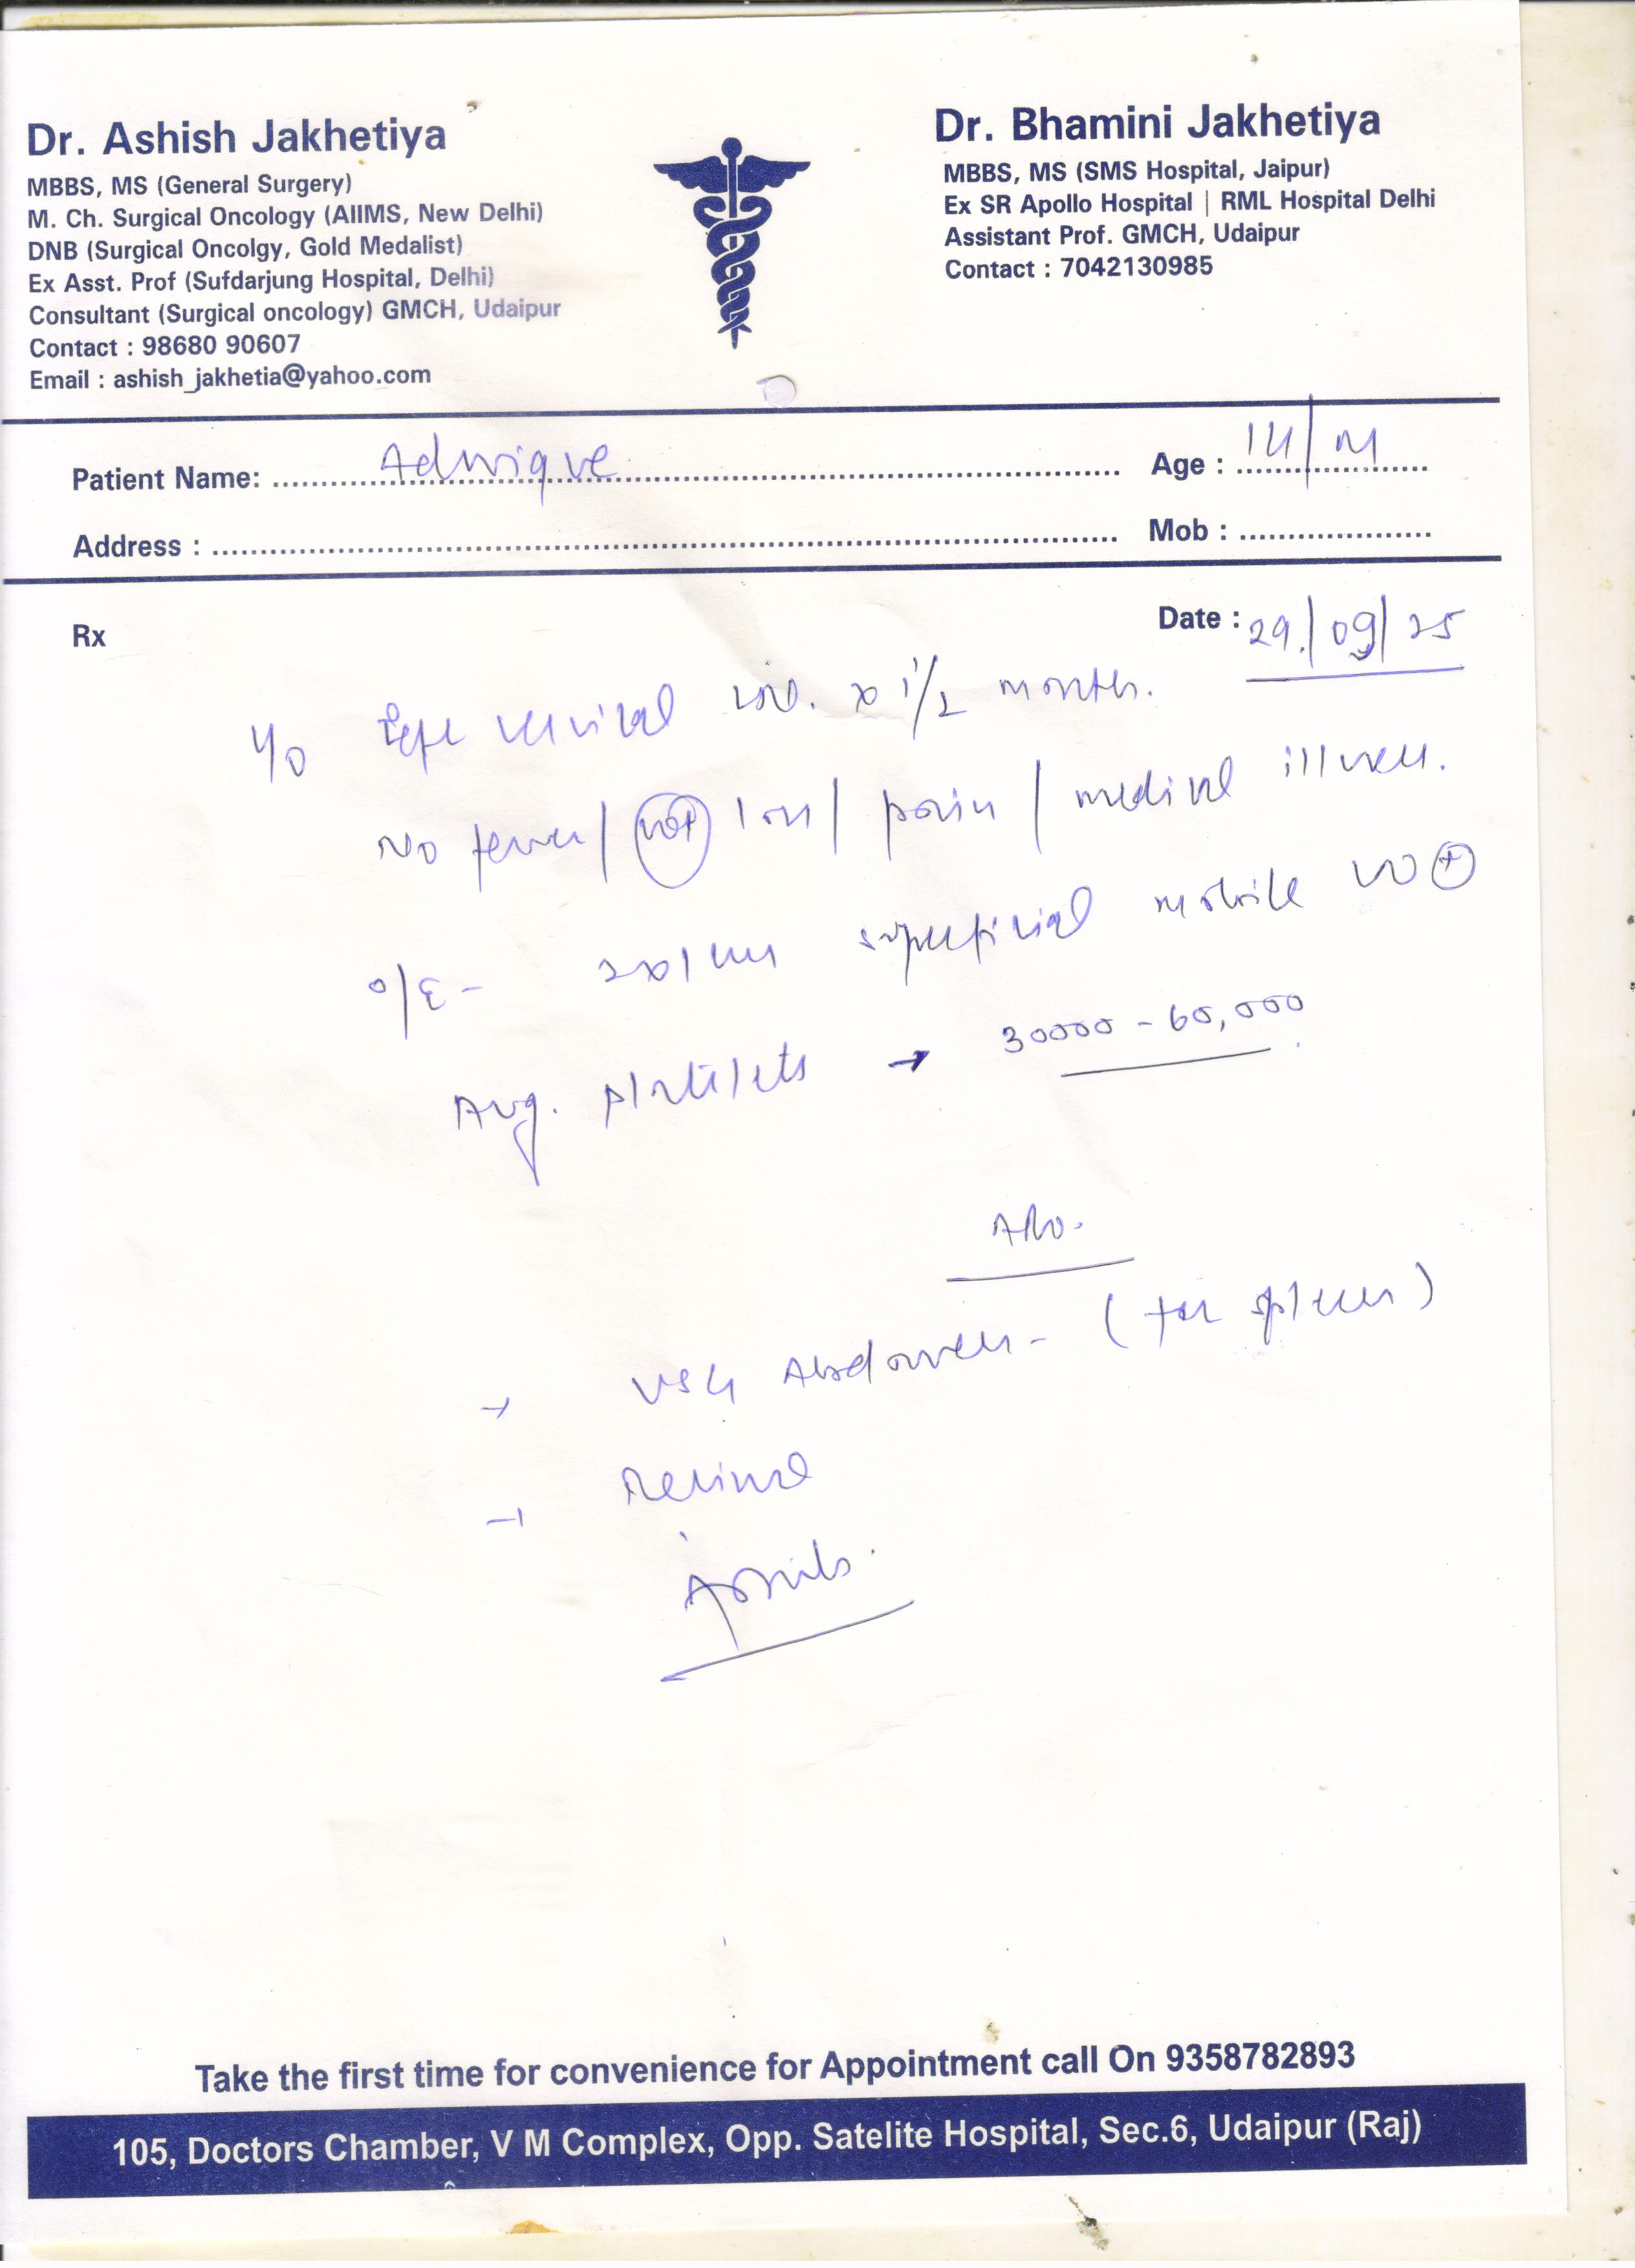 Dr. Ashish Jakhetiya
MBBS, MS (General Surgery)
M. Ch. Surgical Oncology (AIIMS, New Delhi)
DNB (Surgical Oncolgy, Gold Medalist)
Ex Asst. Prof (Sufdarjung Hospital, Delhi)
Consultant (Surgical oncology) GMCH, Udaipur
Contact : 98680 90607
Email : ashish_jakhetia@yahoo.com
Dr. Bhamini Jakhetiya
MBBS, MS (SMS Hospital, Jaipur)
Ex SR Apollo Hospital | RML Hospital Delhi
Assistant Prof. GMCH, Udaipur
Contact : 7042130985
Patient Name: Age : 14/M
Address : Mob :
Rx Date : 29/09/25
Left cervical x 1 1/2 month.
No fever / loss / pain / medical illness.
O/E - superficial mobile
Avg. platelets → 30000 - 60,000
Adv.
→ USG Abdomen - (for spleen)
→
Take the first time for convenience for Appointment call On 9358782893
105, Doctors Chamber, V M Complex, Opp. Satelite Hospital, Sec.6, Udaipur (Raj)